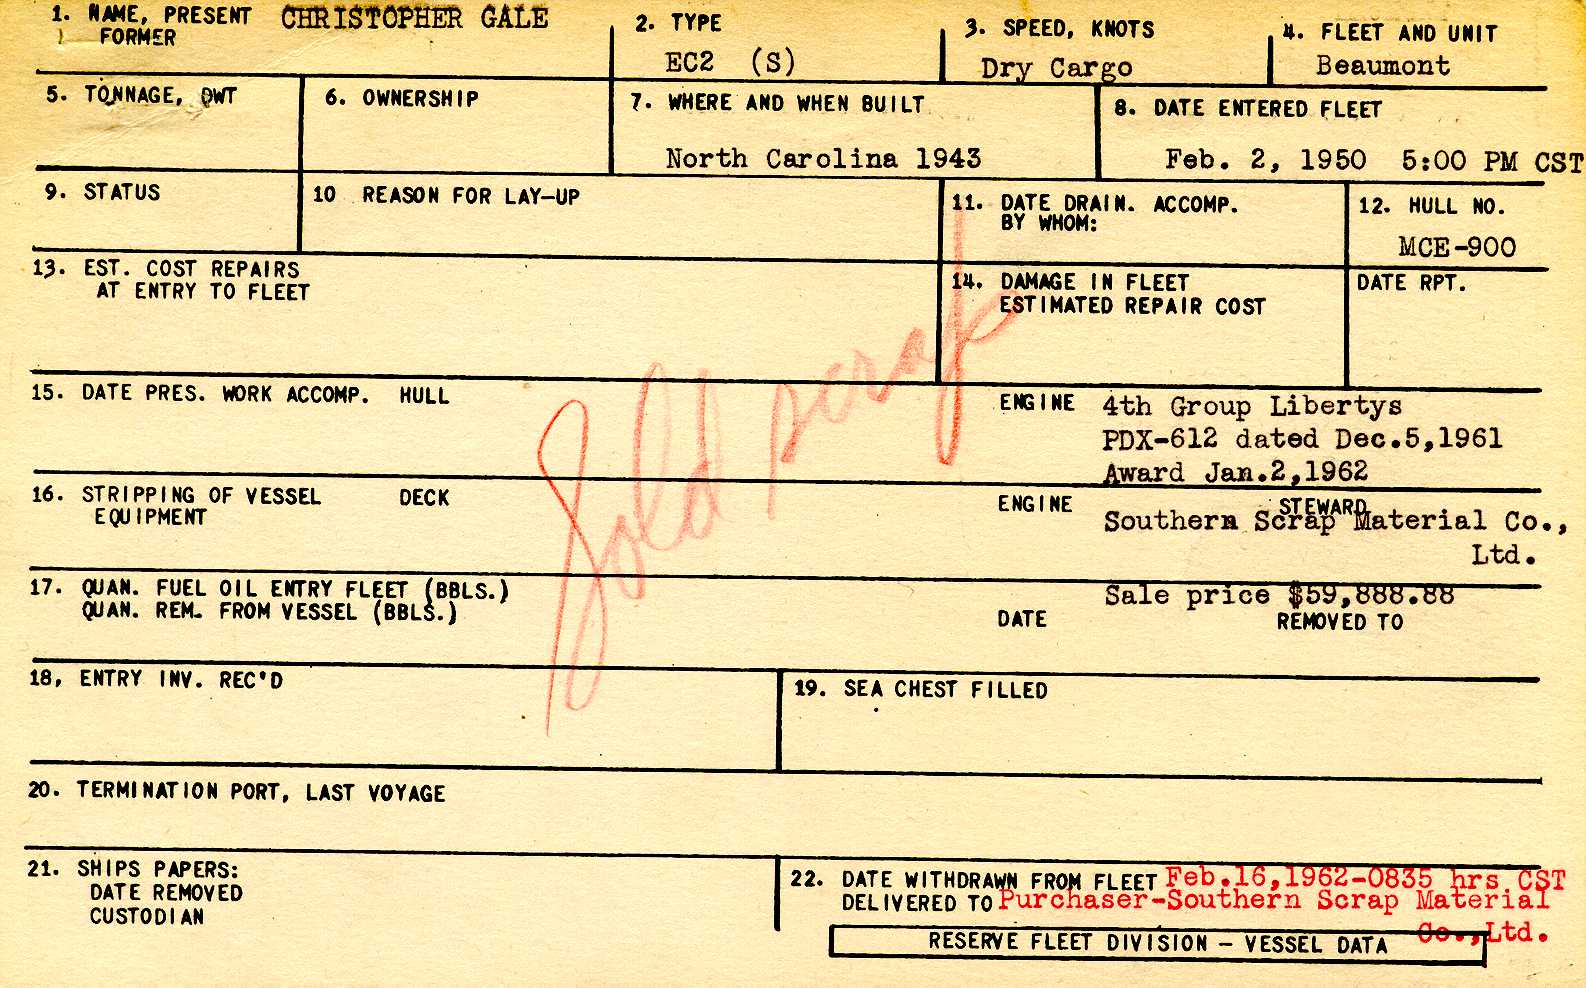 1. NAME, PRESENT CHRISTOPHER GALE
FORMER
2. TYPE
EC2 (S)
3. SPEED, KNOTS
Dry Cargo
4. FLEET AND UNIT
Beaumont
5. TONNAGE, DWT
6. OWNERSHIP
7. WHERE AND WHEN BUILT
North Carolina 1943
8. DATE ENTERED FLEET
Feb. 2, 1950 5:00 PM CST
9. STATUS
10 REASON FOR LAY-UP
11. DATE DRAIN. ACCOMP.
BY WHOM:
12. HULL NO.
MCE-900
13. EST. COST REPAIRS
AT ENTRY TO FLEET
14. DAMAGE IN FLEET
ESTIMATED REPAIR COST
DATE RPT.
Sold scrap
15. DATE PRES. WORK ACCOMP. HULL
ENGINE 4th Group Libertys
PDX-612 dated Dec.5,1961
Award Jan.2,1962
16. STRIPPING OF VESSEL DECK
EQUIPMENT
ENGINE
STEWARD
Southern Scrap Material Co.,
Ltd.
17. QUAN. FUEL OIL ENTRY FLEET (BBLS.)
QUAN. REM. FROM VESSEL (BBLS.)
Sale price $59,888.88
DATE REMOVED TO
18, ENTRY INV. REC'D
19. SEA CHEST FILLED
20. TERMINATION PORT, LAST VOYAGE
21. SHIPS PAPERS:
DATE REMOVED
CUSTODIAN
22. DATE WITHDRAWN FROM FLEET Feb.16,1962-0835 hrs CST
DELIVERED TO Purchaser-Southern Scrap Material
Co.,Ltd.
RESERVE FLEET DIVISION - VESSEL DATA